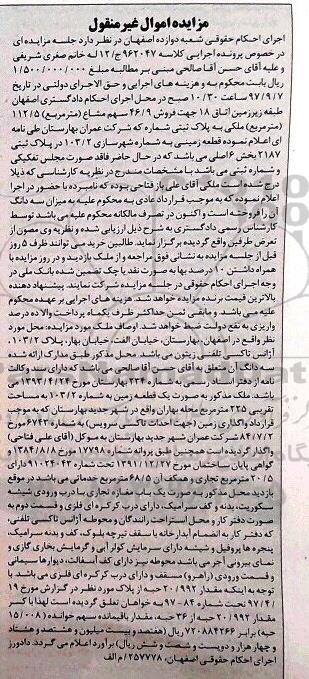 مزایده اموال غیرمنقول
اجرای احکام حقوقی شعبه دوازده اصفهان در نظر دارد جلسه مزایده ای
در خصوص پرونده اجرایی کلاسه ۹۶۲۰۴۷ج/۱۲ له خانم صغری شریفی
و علیه آقای حسن آقا صالحی مبنی بر مطالبه مبلغ ۱/۵۰۰/۰۰۰/۰۰۰
ریال بابت محکوم به و هزینه های اجرایی و حق الاجرای دولتی در تاریخ
۹۷/۹/۷ ساعت ۱۰/۳۰ صبح در محل اجرای احکام دادگستری اصفهان
طبقه زیرزمین اتاق ۱۸ جهت فروش ۴۶/۹ سهم مشاع (مترمربع) از ۱۱۲/۵
(مترمربع) ملکی به پلاک ثبتی شماره که شرکت عمران بهارستان طی نامه
ای اعلام نموده قطعه زمینی به شماره شهرسازی ۱۰۳/۲ در پلاک ثبتی
۲۱۸۷ بخش ۶ اصلی می باشد که در حال حاضر فاقد صورت مجلس تفکیکی
و شماره ثبتی می باشد با مشخصات مندرج در نظریه کارشناسی که ذیلا
درج شده است ملکی آقای علی باز فتاحی بوده که نامبرده با حضور در اجرا
اعلام نموده که به موجب قرارداد عادی به محکوم علیه به میزان سه دانگ
آن را فروخته است و اکنون در تصرف مالکانه محکوم علیه می باشد توسط
کارشناس رسمی دادگستری به شرح ذیل ارزیابی شده و نظریه وی مصون از
تعرض طرفین واقع گردیده برگزار نماید. طالبین خرید می توانند ظرف ۵ روز
قبل از جلسه مزایده به نشانی فوق مراجعه و از ملک بازدید و در روز مزایده با
همراه داشتن ۱۰ درصد بها به صورت نقد یا چک تضمین شده بانک ملی در
وجه اجرای احکام حقوقی در جلسه مزایده شرکت نمایند. پیشنهاد دهنده
بالاترین قیمت برنده مزایده خواهد شد. هزینه های اجرایی بر عهده محکوم
علیه می باشد و مابقی ثمن حداکثر ظرف یکماه پرداخت والا ده درصد
واریزی به نفع دولت ضبط خواهد شد. اوصاف ملک مورد مزایده: محل مورد
نظر واقع در اصفهان، بهارستان، خیابان الفت، خیابان بهار، پلاک ۱۰۳/۲
آژانس تاکسی تلفنی زیتون می باشد. محل مذکور طبق مدارک ارائه شده
سه دانگ آن متعلق به آقای حسن آقا صالحی می باشد که دارای سند وکالت
نامه از دفتر اسناد رسمی به شماره ۲۳۴ بهارستان مورخ ۱۳۹۳/۴/۲۴ می
باشد. ملک مذکور به صورت یک قطعه زمین به شماره ۱۰۳/۲ به مساحت
تقریبی ۲۲۵ مترمربع محله بهاران واقع در شهر جدید بهارستان که به موجب
قرارداد واگذاری زمین (جهت احداث تاکسی سرویس) به شماره ۶۷۴۲ مورخ
۸۴/۷/۲ شرکت عمران شهر جدید بهارستان به موکل (آقای علی فتاحی)
واگذار گردیده است همچنین طبق پروانه شماره ۱۷۷۹۸ مورخ ۱۳۸۴/۸/۸ و
گواهی پایان ساختمان مورخ ۱۳۹۱/۱۲/۲۷ تحت شماره ۹۱۰۲۴۰۴۳ دارای
۲۰/۵ مترمربع تجاری و همکف آن ۶۸/۵ مترمربع خدماتی می باشد در موقع
بازدید محل مذکور به صورت یک باب مغازه تجاری با درب ورودی شیشه
سکوریت، بدنه و کف سرامیک، دارای درب کرکره ای فلزی و قسمت دوم به
صورت دفتر کار و محل استراحت رانندگان و محوطه آژانس تاکسی تلفنی،
که دفتر کار به انضمام آبدارخانه با سقف تیرچه بلوک، کف و بدنه سرامیک
پنجره ها پروفیل و شیشه دارای سرمایش کولر آبی و گرمایش بخاری گازی و
نمای بیرونی آجر می باشد محوطه نیز دارای کف آسفالت، دیوارها سیمانی
و قسمت ورودی (راهرو) مسقف و دارای درب کرکره ای فلزی می باشد با
توجه به اینکه مقدار ۲۰/۹۹۲ حبه از پلاک مورد نظر در گزارش مورخ ۱۹
۹۷/۴/ تحت شماره ۸۴-۹۷ به خواهان تعلق گردیده است لهذا با کسر
مقدار ۲۰/۹۹۲ حبه از ۳۶ حبه، مقدار باقیمانده سهم خوانده (۱۵/۰۰۸
حبه) برابر ۷۲۰۸۸۴۲۶۶ ریال (هفتصد و بیست میلیون و هشتصد و هشتاد
و چهار هزار و دویست و شصت و شش ریال) برآورد اعلام می گردد. دادورز
اجرای احکام حقوقی اصفهان، ۲۵۷۷۷۸/م الف